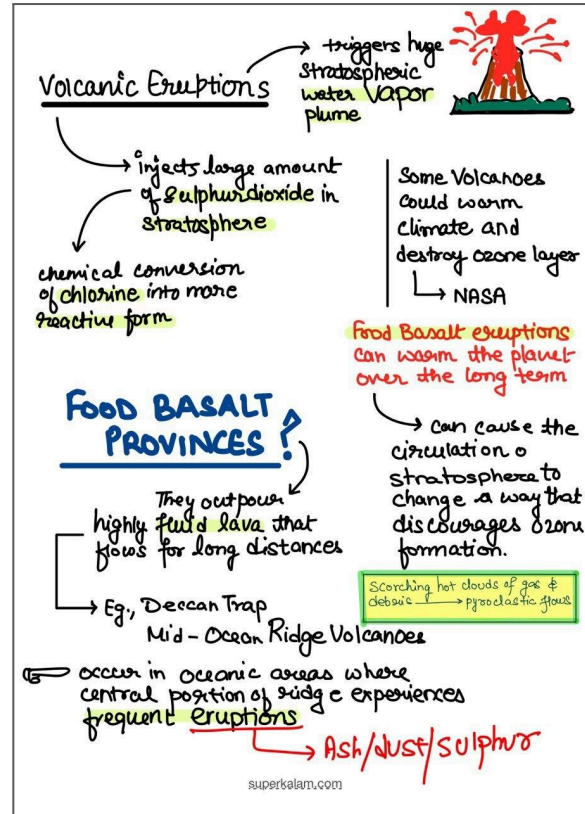 Volcanic Eruptions
triggers huge
stratospheric
water vapor
plume
injects large amount
of sulphurdioxide in
stratosphere
chemical conversion
of chlorine into more
reactive form
Some Volcanoes
could warm
climate and
destroy ozone layer
NASA
Food Basalt eruptions
can warm the planet
over the long term
can cause the
circulation o
stratosphere to
change a way that
discourages ozone
formation.
Scorching hot clouds of gas &
debris → pyroclastic flows
FOOD BASALT
PROVINCES?
They outpour
highly fluid lava that
flows for long distances
Eg., Deccan Trap
Mid-Ocean Ridge Volcanoes
occur in oceanic areas where
central portion of ridge experiences
frequent eruptions
Ash/dust/sulphur
superkalam.com